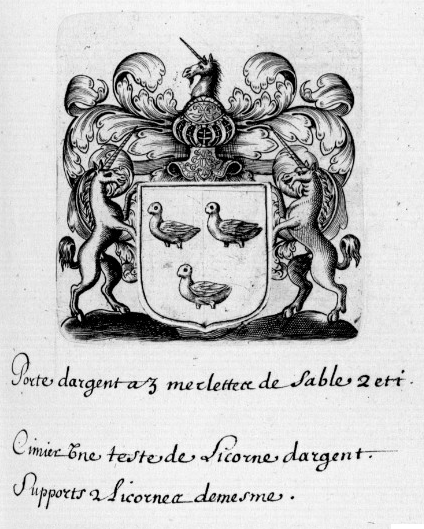 Porte dargent a 3 merlettes de Sable 2 et i.
Cimier Vne teste de Licorne dargent.
Supports 2 Licornes demesme.